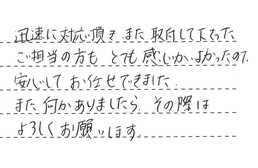 迅速に対応頂き また 取付して下さった
ご担当の方も とても 感じが よかったので、
安心して お任せできました。
また 何か ありましたら その際は
よろしく お願いします。